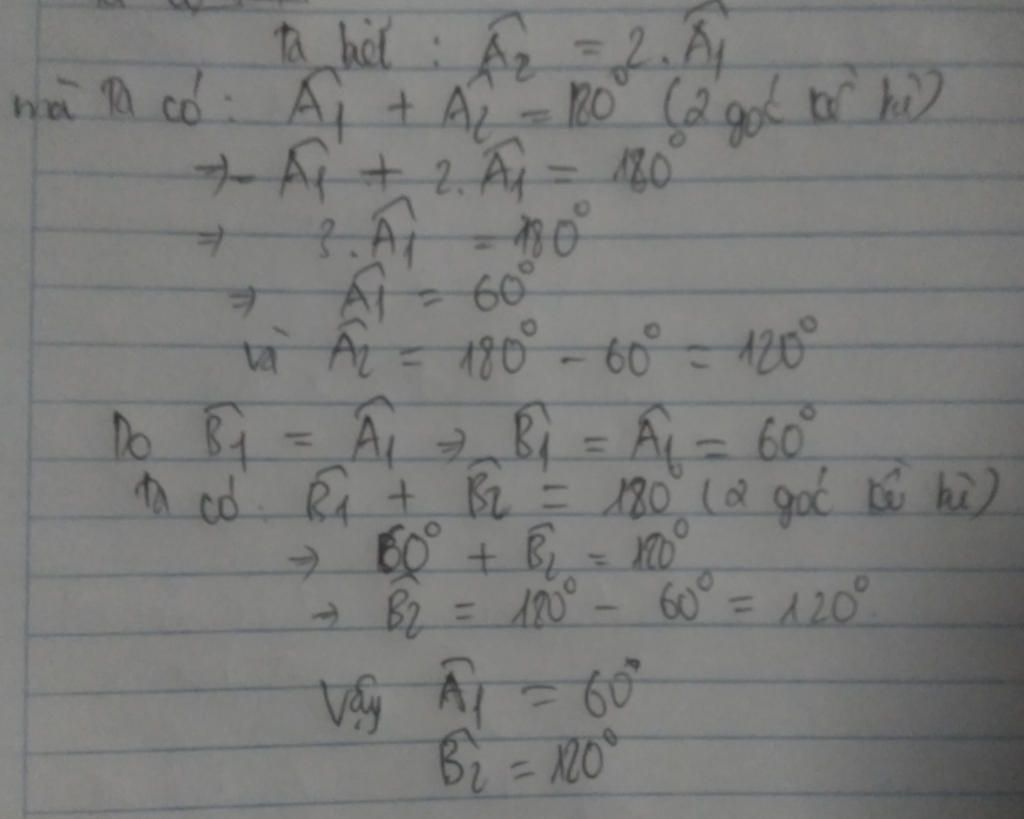 Ta biết : Â₂ = 2.Â₁
mà ta có: Â₁ + Â₂ = 180° (2 góc kề bù)
⇒ Â₁ + 2.Â₁ = 180°
⇒ 3.Â₁ = 180°
⇒ Â₁ = 60°
và Â₂ = 180° - 60° = 120°
Do B̂₁ = Â₁ ⇒ B̂₁ = Â₁ = 60°
Ta có: B̂₁ + B̂₂ = 180° (2 góc kề bù)
⇒ 60° + B̂₂ = 180°
⇒ B̂₂ = 180° - 60° = 120°
Vậy Â₁ = 60°
B̂₂ = 120°